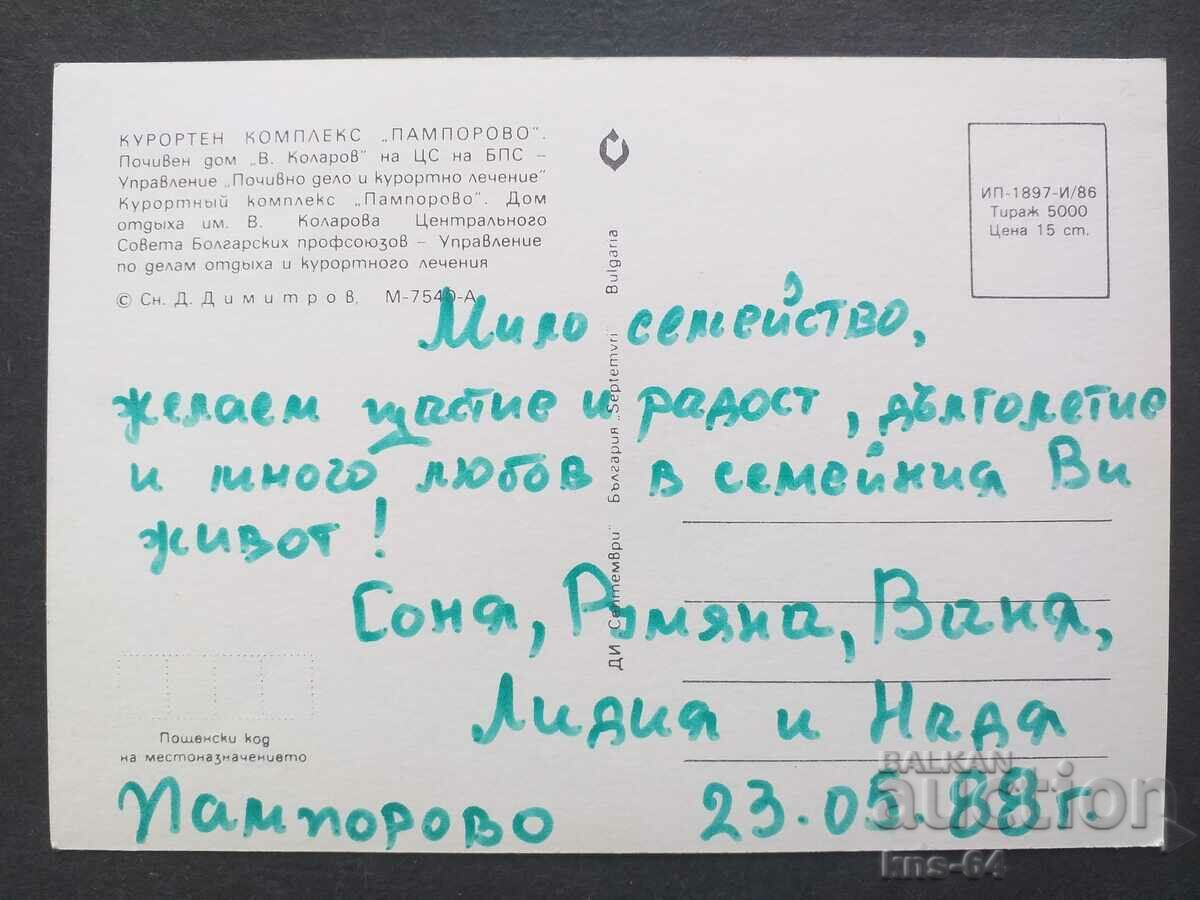 КУРОРТЕН КОМПЛЕКС „ПАМПОРОВО".
Почивен дом „В. Коларов" на ЦС на БПС –
Управление „Почивно дело и курортно лечение"
Курортный комплекс „Пампорово". Дом
отдыха им. В. Коларова Центрального
Совета Болгарских профсоюзов – Управление
по делам отдыха и курортного лечения
© Сн. Д. Димитров, М-7540-А
ИП-1897-И/86
Тираж 5000
Цена 15 ст.
ДИ „Септември" България „Septemvri" Bulgaria
Мило семейство,
желаем щастие и радост, дълголетие
и много любов в семейния Ви
живот!
Соня, Румяна, Ваня,
Лидия и Надя
Пощенски код
на местоназначението
Пампорово 23.05.88 г
BALKAN
auction
kns-64